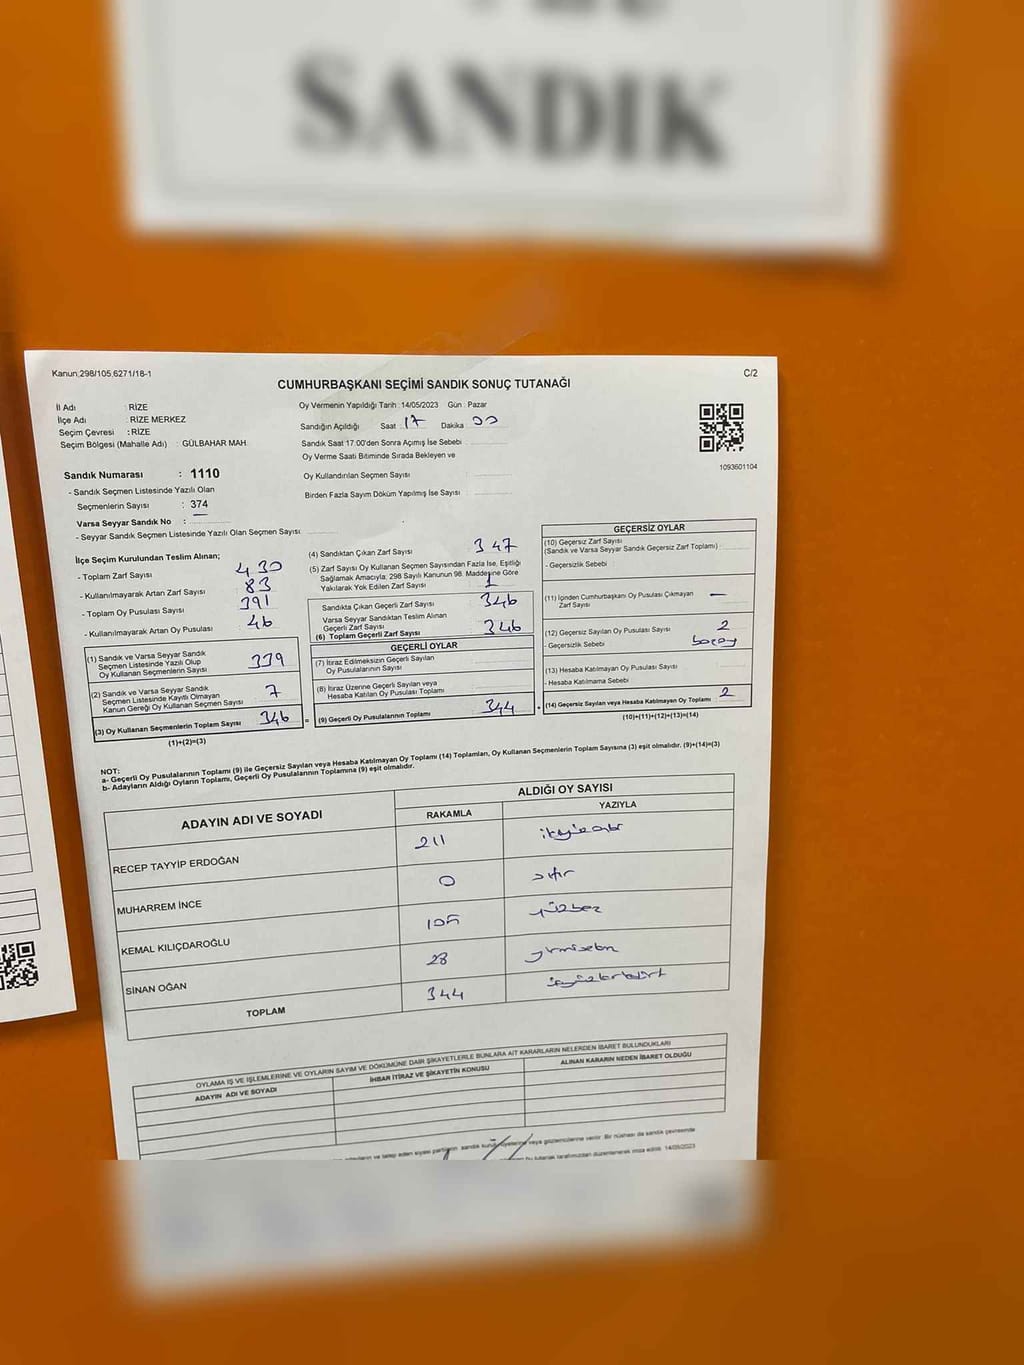 SANDIK
Kanun;298/105,6271/18-1
C/2
CUMHURBAŞKANI SEÇİMİ SANDIK SONUÇ TUTANAĞI
İl Adı : RİZE
İlçe Adı : RİZE MERKEZ
Seçim Çevresi : RİZE
Seçim Bölgesi (Mahalle Adı) : GÜLBAHAR MAH.
Oy Vermenin Yapıldığı Tarih :14/05/2023 Gün : Pazar
Sandığın Açıldığı Saat 17 Dakika 00
Sandık Saat 17.00'den Sonra Açılmış İse Sebebi
Oy Verme Saati Bitiminde Sırada Bekleyen ve
Oy Kullandırılan Seçmen Sayısı
Birden Fazla Sayım Döküm Yapılmış İse Sayısı
1093601104
Sandık Numarası : 1110
- Sandık Seçmen Listesinde Yazılı Olan
Seçmenlerin Sayısı : 374
Varsa Seyyar Sandık No :
- Seyyar Sandık Seçmen Listesinde Yazılı Olan Seçmen Sayısı
İlçe Seçim Kurulundan Teslim Alınan;
- Toplam Zarf Sayısı 430
- Kullanılmayarak Artan Zarf Sayısı 83
- Toplam Oy Pusulası Sayısı 391
- Kullanılmayarak Artan Oy Pusulası 46
(1) Sandık ve Varsa Seyyar Sandık
Seçmen Listesinde Yazılı Olup
Oy Kullanan Seçmenlerin Sayısı 339
(2) Sandık ve Varsa Seyyar Sandık
Seçmen Listesinde Kayıtlı Olmayan
Kanun Gereği Oy Kullanan Seçmen Sayısı 7
(3) Oy Kullanan Seçmenlerin Toplam Sayısı 346
(1)+(2)=(3)
(4) Sandıktan Çıkan Zarf Sayısı 347
(5) Zarf Sayısı Oy Kullanan Seçmen Sayısından Fazla İse, Eşitliği
Sağlamak Amacıyla; 298 Sayılı Kanunun 98. Maddesine Göre
Yakılarak Yok Edilen Zarf Sayısı 1
Sandıkta Çıkan Geçerli Zarf Sayısı 346
Varsa Seyyar Sandıktan Teslim Alınan
Geçerli Zarf Sayısı
(6) Toplam Geçerli Zarf Sayısı 346
GEÇERLİ OYLAR
(7) İtiraz Edilmeksizin Geçerli Sayılan
Oy Pusulalarının Sayısı
(8) İtiraz Üzerine Geçerli Sayılan veya
Hesaba Katılan Oy Pusulası Toplamı
= (9) Geçerli Oy Pusulalarının Toplamı 344
GEÇERSİZ OYLAR
(10) Geçersiz Zarf Sayısı
(Sandık ve Varsa Seyyar Sandık Geçersiz Zarf Toplamı) :
- Geçersizlik Sebebi
(11) İçinden Cumhurbaşkanı Oy Pusulası Çıkmayan —
Zarf Sayısı
(12) Geçersiz Sayılan Oy Pusulası Sayısı 2
- Geçersizlik Sebebi
(13) Hesaba Katılmayan Oy Pusulası Sayısı
- Hesaba Katılmama Sebebi
+ (14) Geçersiz Sayılan veya Hesaba Katılmayan Oy Toplamı 2
(10)+(11)+(12)+(13)=(14)
NOT:
a- Geçerli Oy Pusulalarının Toplamı (9) ile Geçersiz Sayılan veya Hesaba Katılmayan Oy Toplamı (14) Toplamları, Oy Kullanan Seçmenlerin Toplam Sayısına (3) eşit olmalıdır. (9)+(14)=(3)
b- Adayların Aldığı Oyların Toplamı, Geçerli Oy Pusulalarının Toplamına (9) eşit olmalıdır.
ADAYIN ADI VE SOYADI
ALDIĞI OY SAYISI
RAKAMLA YAZIYLA
RECEP TAYYİP ERDOĞAN 211 ikiyüzonbir
MUHARREM İNCE 0 sıfır
KEMAL KILIÇDAROĞLU 105 yüzbeş
SİNAN OĞAN 28 yirmisekiz
TOPLAM 344 üçyüzkırkdört
OYLAMA İŞ VE İŞLEMLERİNE VE OYLARIN SAYIM VE DÖKÜMÜNE DAİR ŞİKAYETLERLE BUNLARA AİT KARARLARIN NELERDEN İBARET BULUNDUKLARI
ADAYIN ADI VE SOYADI
İHBAR İTİRAZ VE ŞİKAYETİN KONUSU
ALINAN KARARIN NEDEN İBARET OLDUĞU